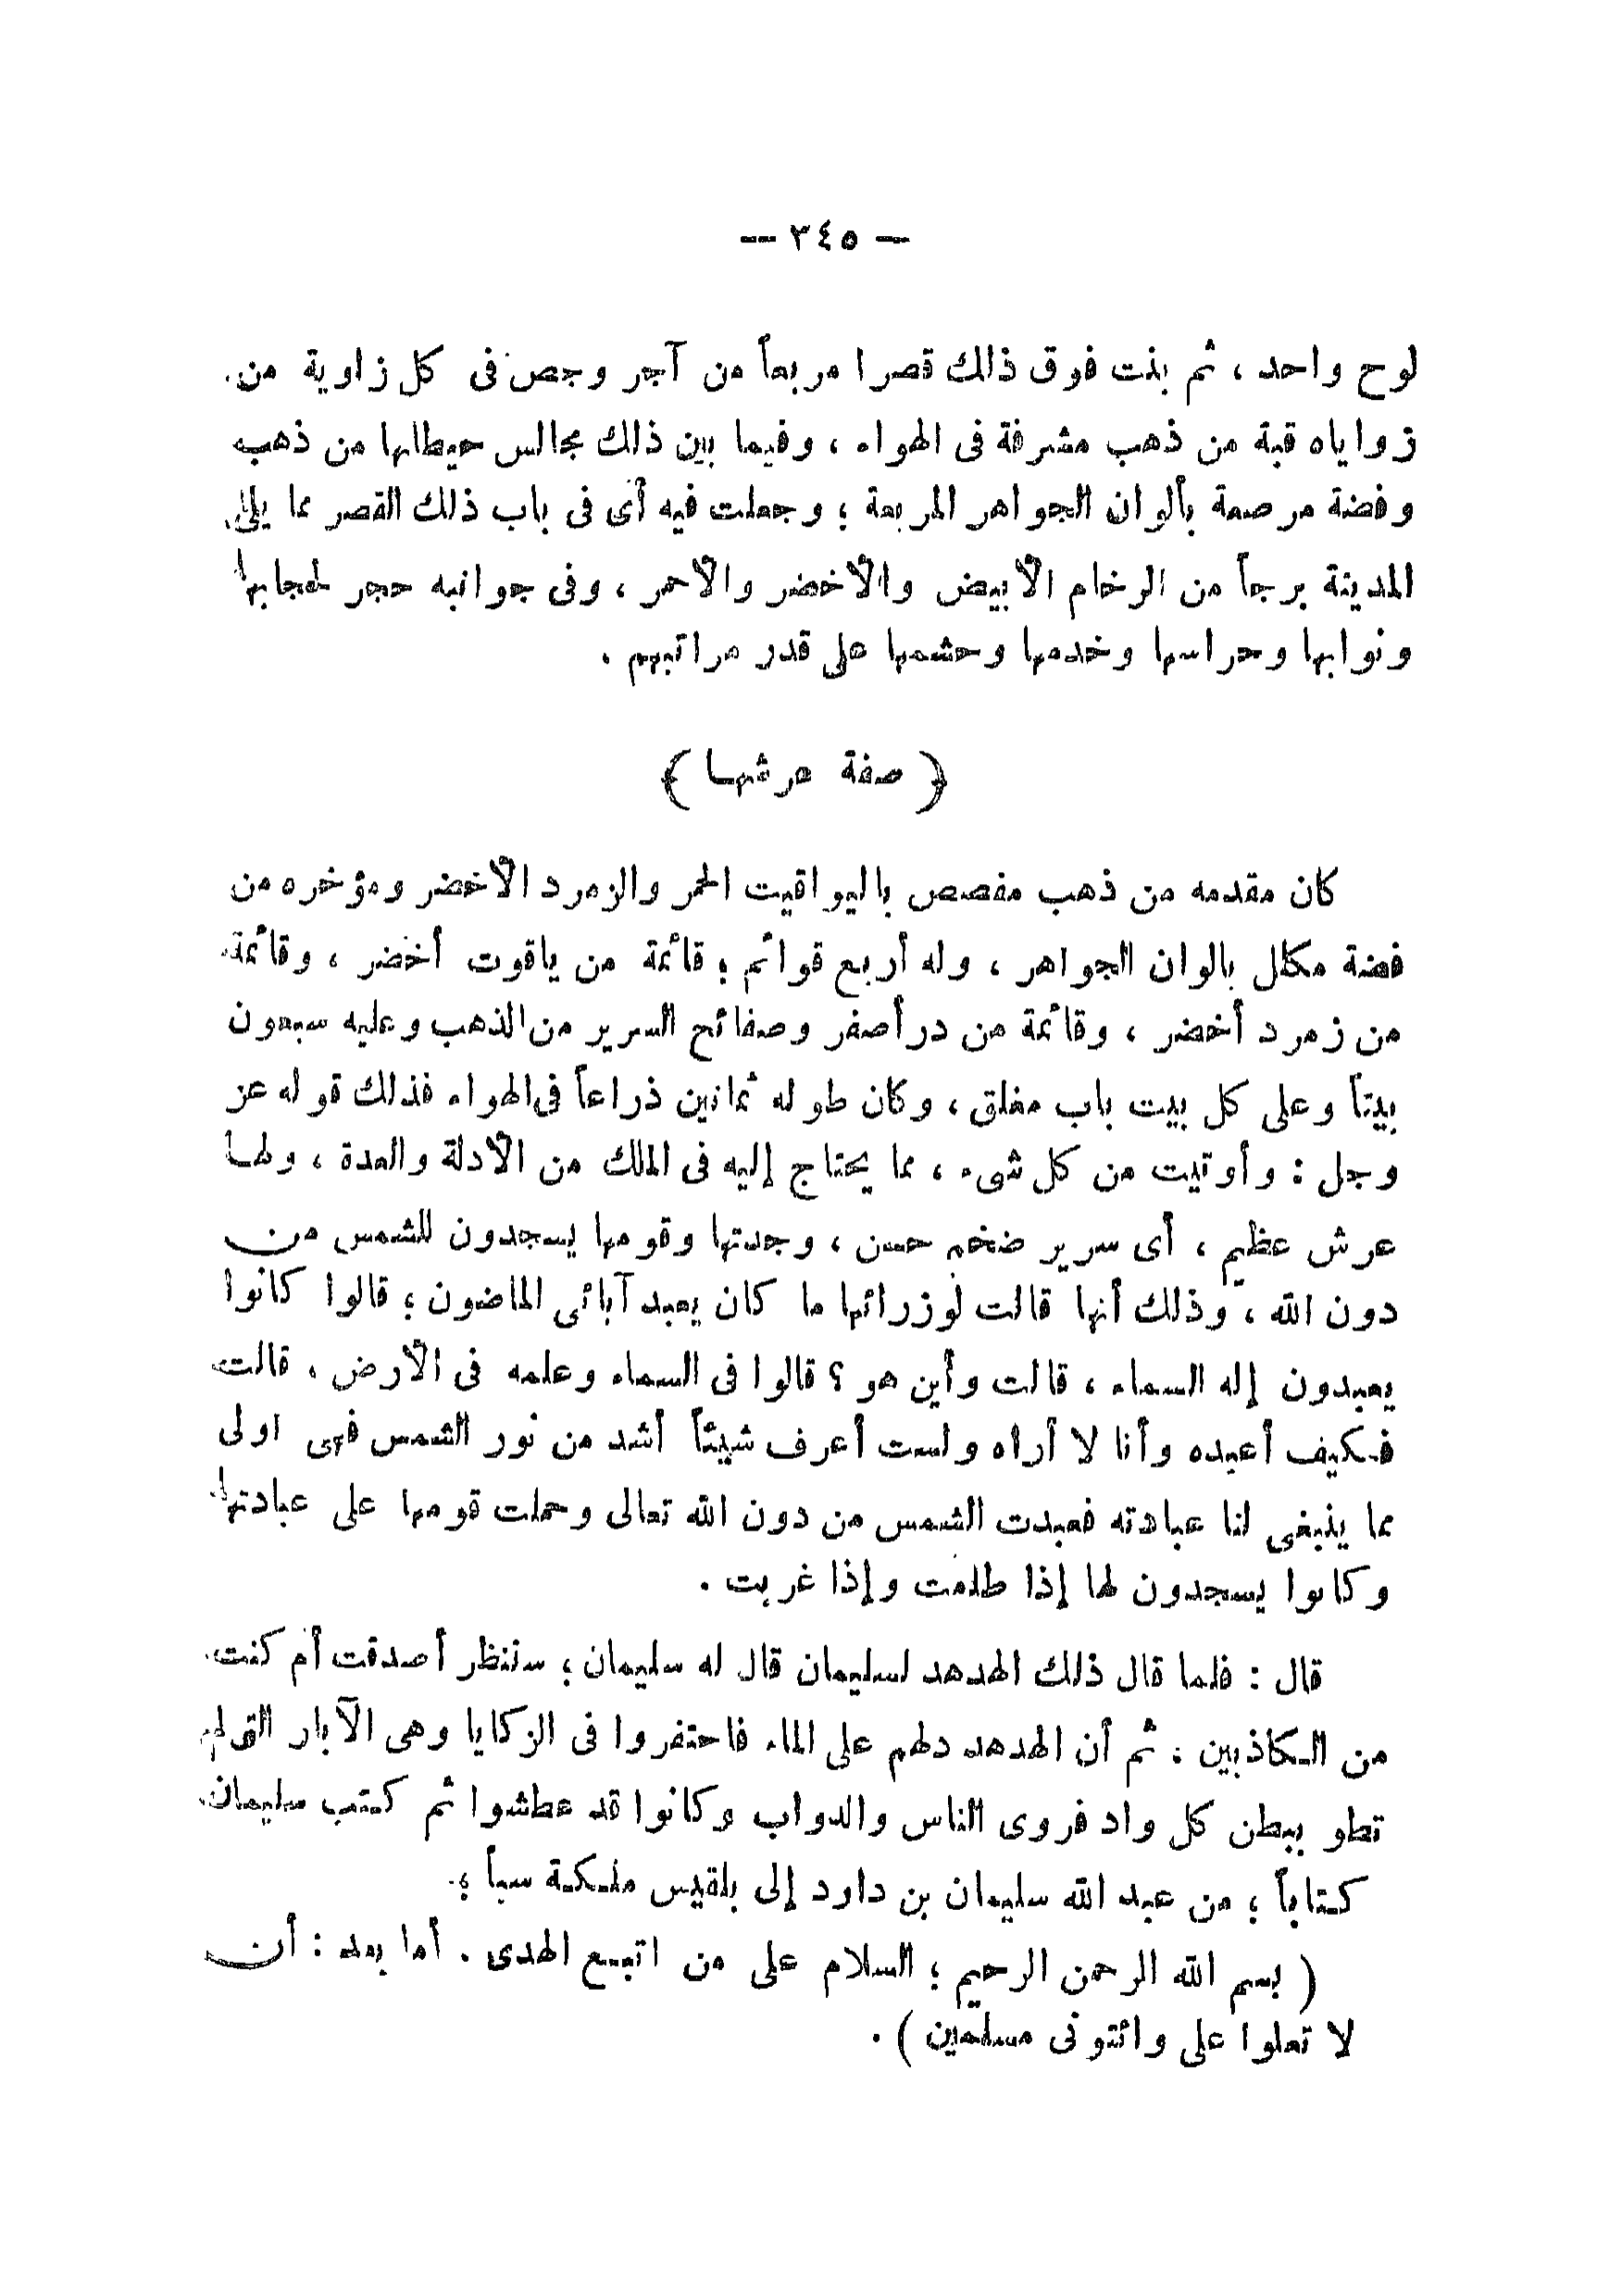 — ٣٤٥ —
لوح واحد ، ثم بنت فوق ذالك قصرا مربعاً من آجر وجص فى كل زاوية من
زواياه قبة من ذهب مشرفة فى الهواء ، وفيما بين ذلك مجالس حيطانها من ذهب
وفضة مرصعة بألوان الجواهر المربعة ؛ وجعلت فيه أى فى باب ذلك القصر مما يلى
المدينة برجاً من الرخام الأبيض والأخضر والأحمر ، وفى جوانبه حجر لحجابها
ونوابها وحراسها وخدمها وحشمها على قدر مراتبهم .
﴿ صفة عرشها ﴾
كان مقدمه من ذهب مفصص باليواقيت الحمر والزمرد الأخضر ومؤخره من
فضة مكلل بالوان الجواهر ، وله أربع قوائم ؛ قائمة من ياقوت أخضر ، وقائمة
من زمرد أخضر ، وقائمة من در أصفر وصفائح السرير من الذهب وعليه سبعون
بيتاً وعلى كل بيت باب مغلق ، وكان طوله ثمانين ذراعاً فى الهواء فذلك قوله عز
وجل : وأوتيت من كل شىء ، مما يحتاج إليه فى الملك من الأدلة والعدة ، ولها
عرش عظيم ، أى سرير ضخم حسن ، وجدتها وقومها يسجدون للشمس من
دون الله ، وذلك أنها قالت لوزرائها ما كان يعبد آبائى الماضون ؛ قالوا كانوا
يعبدون إله السماء ، قالت وأين هو ؟ قالوا فى السماء وعلمه فى الأرض ، قالت
فكيف أعبده وأنا لا أراه ولست أعرف شيئاً أشد من نور الشمس فهى اولى
مما ينبغى لنا عبادته فعبدت الشمس من دون الله تعالى وحملت قومها على عبادتها
وكانوا يسجدون لها إذا طلعت وإذا غربت .
قال : فلما قال ذلك الهدهد لسليمان قال له سليمان ؛ سننظر أصدقت أم كنت
من الكاذبين ؛ ثم أن الهدهد دلهم على الماء فاحتفروا فى الزكايا وهى الآبار التى لم
تطو ببطن كل واد فروى الناس والدواب وكانوا قد عطشوا ثم كتب سليمان
كتاباً ؛ من عبد الله سليمان بن داود إلى بلقيس ملكة سبأ ؛
( بسم الله الرحمن الرحيم ؛ السلام على من اتبع الهدى . أما بعد : أن
لا تعلوا على وائتونى مسلمين ) .